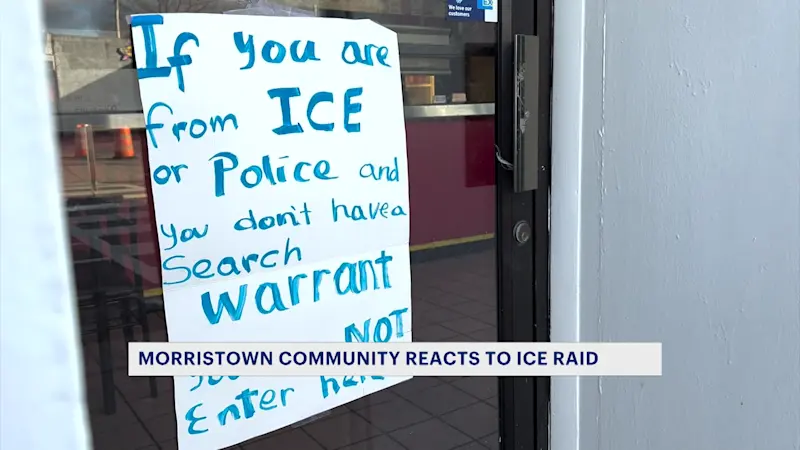 We love our
customers
If you are
from ICE
or Police and
you don't have a
Search
Warrant
NOT
Enter
MORRISTOWN COMMUNITY REACTS TO ICE RAID